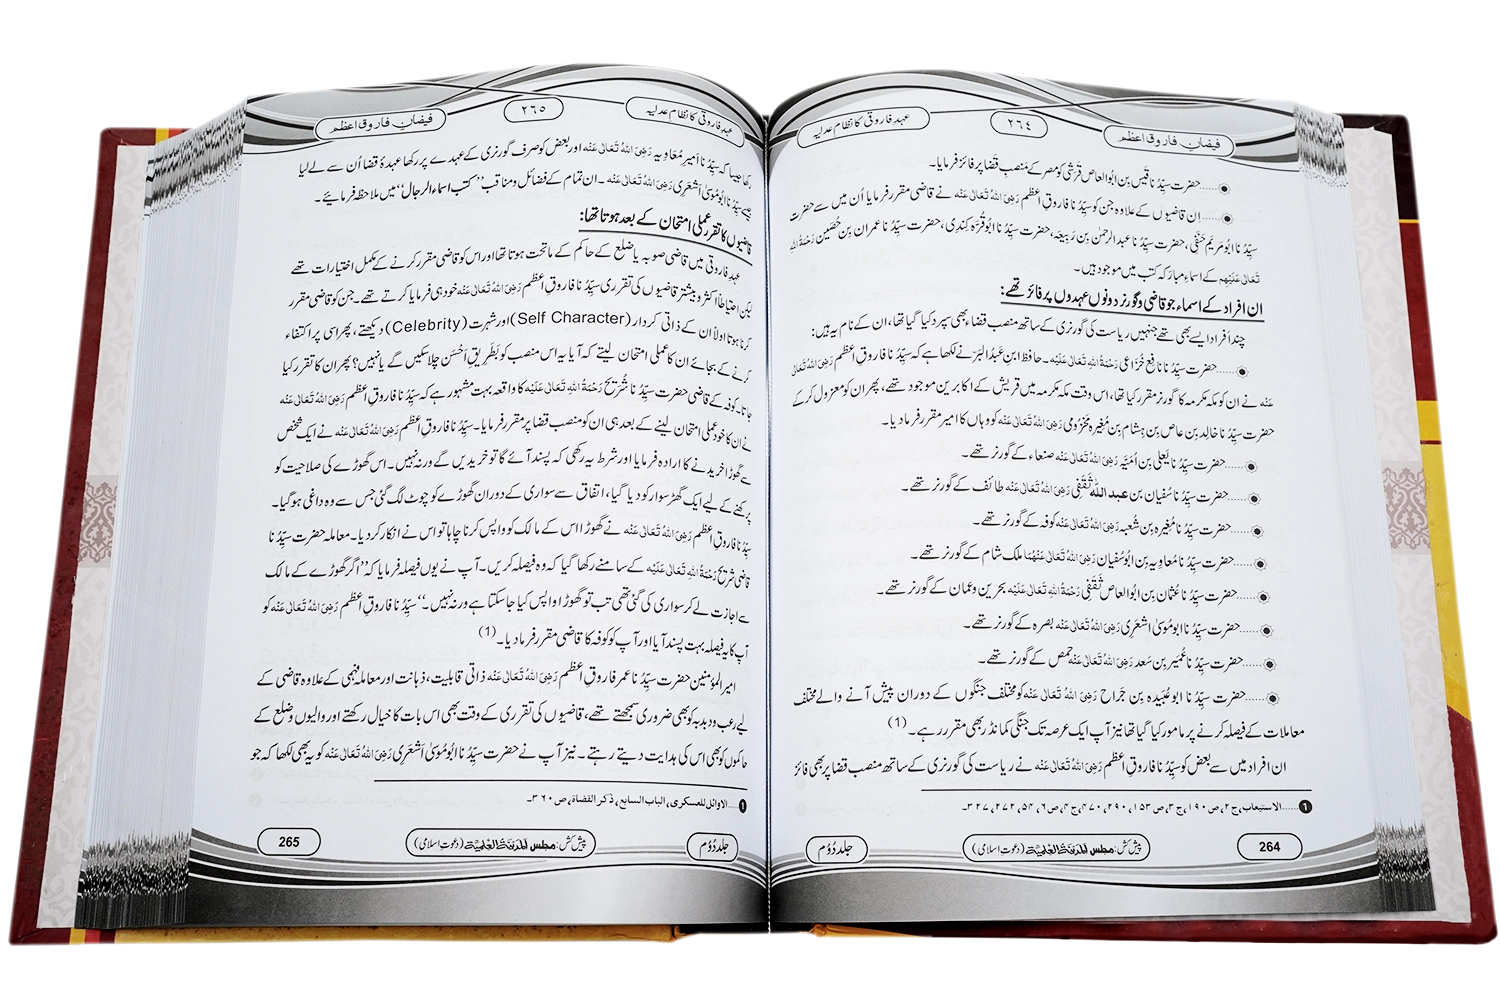 فیضانِ فاروقِ اعظم
٢٦٤
عہدِ فاروقی کا نظام عدلیہ
......حضرت سیِّدُنا قیس بِن ابو العاص قَرَشِی کو مصر کے مَنصبِ قضا پر فائز فرمایا۔
......اِن قاضیوں کے علاوہ جن کو سیِّدُنا فاروقِ اعظم رَضِیَ اللہُ تَعَالٰی عَنْہ نے قاضی مقرر فرمایا اُن میں سے حضرت
سیِّدُنا ابو مریَم حَنَفِی، حضرت سیِّدُنا عبد الرحمٰن بِن رَبِیعَہ، حضرت سیِّدُنا ابو قُرَّہ کِندِی، حضرت سیِّدُنا عمران بِن حُصَین رَحْمَۃُ اللہِ
تَعَالٰی عَلَیْہِم کے اسماءِ مبارَکہ کتب میں موجود ہیں۔
ان افراد کے اسماء جو قاضی و گورنر دونوں عہدوں پر فائز تھے:
چند افراد ایسے بھی تھے جنہیں ریاست کی گورنری کے ساتھ منصب قضاء بھی سپرد کیا گیا تھا، ان کے نام یہ ہیں:
......حضرت سیِّدُنا نافع خُزاعی رَحْمَۃُ اللہِ تَعَالٰی عَلَیْہ۔ حافظ ابن عبدُ البَر نے لکھا ہے کہ سیِّدُنا فاروقِ اعظم رَضِیَ اللہُ تَعَالٰی
عَنْہ نے ان کو مکہ مکرمہ کا گورنر مقرر کیا تھا، اس وقت مکہ مکرمہ میں قریش کے اکابرین موجود تھے، پھر ان کو معزول کر کے
حضرت سیِّدُنا خالد بِن عاص بِن ہِشام بِن مُغِیرہ مَخْزُومی رَضِیَ اللہُ تَعَالٰی عَنْہ کو وہاں کا امیر مقرر فرما دیا۔
......حضرت سیِّدُنا یَعلٰی بِن اُمَیَّہ رَضِیَ اللہُ تَعَالٰی عَنْہ صنعاء کے گورنر تھے۔
......حضرت سیِّدُنا سُفیان بِن عبد اللہ ثَقَفِی رَضِیَ اللہُ تَعَالٰی عَنْہ طائف کے گورنر تھے۔
......حضرت سیِّدُنا مُغِیرہ بِن شُعبہ رَضِیَ اللہُ تَعَالٰی عَنْہ کوفہ کے گورنر تھے۔
......حضرت سیِّدُنا مُعاوِیہ بِن ابو سُفیان رَضِیَ اللہُ تَعَالٰی عَنْہُمَا ملک شام کے گورنر تھے۔
......حضرت سیِّدُنا عثمان بِن ابو العاص ثَقَفِی رَضِیَ اللہُ تَعَالٰی عَنْہ بحرین و عمان کے گورنر تھے۔
......حضرت سیِّدُنا ابو موسٰی اشعَرِی رَضِیَ اللہُ تَعَالٰی عَنْہ بصرہ کے گورنر تھے۔
......حضرت سیِّدُنا عُمَیر بِن سَعد رَضِیَ اللہُ تَعَالٰی عَنْہ حِمص کے گورنر تھے۔
......حضرت سیِّدُنا ابو عُبَیدہ بِن جَراح رَضِیَ اللہُ تَعَالٰی عَنْہ کو مختلف جنگوں کے دوران پیش آنے والے مختلف
معاملات کے فیصلہ کرنے پر مامور کیا گیا تھا نیز آپ ایک عرصہ تک جنگی کمانڈر بھی مقرر رہے۔ (1)
ان افراد میں سے بعض کو سیِّدُنا فاروقِ اعظم رَضِیَ اللہُ تَعَالٰی عَنْہ نے ریاست کی گورنری کے ساتھ منصب قضا پر بھی فائز
1......الاستیعاب، ج ۲، ص ۱۹۰، ج ۳، ص ۱۵۳، ۲۹۰، ۴۷۰، ج ۴، ص ۶، ۵۴، ۲۷۲، ۳۲۷۔
264
پیش کش: مجلس المدینۃ العلمیۃ (دعوتِ اسلامی)
جلد دُوُم
فیضانِ فاروقِ اعظم
٢٦٥
عہدِ فاروقی کا نظام عدلیہ
رکھا جیسا کہ سیِّدُنا امیر مُعاوِیہ رَضِیَ اللہُ تَعَالٰی عَنْہ اور بعض کو صرف گورنری کے عہدے پر رکھا عہدۂ قضا اُن سے لے لیا
جیسے سیِّدُنا ابو موسٰی اَشعَرِی رَضِیَ اللہُ تَعَالٰی عَنْہ۔ ان تمام کے فضائل و مناقب ”کتب اسماء الرجال“ میں ملاحظہ فرمائیے۔
قاضیوں کا تقرر عملی امتحان کے بعد ہوتا تھا:
عہدِ فاروقی میں قاضی صوبہ یا ضلع کے حاکم کے ماتحت ہوتا تھا اور اس کو قاضی مقرر کرنے کے مکمل اختیارات تھے
لیکن احتیاطاً اکثر و بیشتر قاضیوں کی تقرری سیِّدُنا فاروقِ اعظم رَضِیَ اللہُ تَعَالٰی عَنْہ خود ہی فرمایا کرتے تھے۔ جن کو قاضی مقرر
کرنا ہوتا اولاً ان کے ذاتی کردار (Self Character) اور شہرت (Celebrity) دیکھتے، پھر اسی پر اکتفاء
کرنے کے بجائے ان کا عملی امتحان لیتے کہ آیا یہ اس منصب کو بَطَرِیقِ اَحسَن چلا سکیں گے یا نہیں؟ پھر ان کا تقرر کیا
جاتا۔ کوفہ کے قاضی حضرت سیِّدُنا شُرَیح رَحْمَۃُ اللہِ تَعَالٰی عَلَیْہ کا واقعہ بہت مشہور ہے کہ سیِّدُنا فاروقِ اعظم رَضِیَ اللہُ تَعَالٰی عَنْہ
نے ان کا خود عملی امتحان لینے کے بعد ہی ان کو منصب قضا پر مقرر فرمایا۔ سیِّدُنا فاروقِ اعظم رَضِیَ اللہُ تَعَالٰی عَنْہ نے ایک شخص
سے گھوڑا خریدنے کا ارادہ فرمایا اور شرط یہ رکھی کہ پسند آئے گا تو خریدیں گے ورنہ نہیں۔ اس گھوڑے کی صلاحیت کو
پرکھنے کے لیے ایک گھڑ سوار کو دیا گیا، اتفاق سے سواری کے دوران گھوڑے کو چوٹ لگ گئی جس سے وہ داغی ہو گیا۔
سیِّدُنا فاروقِ اعظم رَضِیَ اللہُ تَعَالٰی عَنْہ نے گھوڑا اس کے مالک کو واپس کرنا چاہا تو اس نے انکار کر دیا۔ معاملہ حضرت سیِّدُنا
قاضی شریح رَحْمَۃُ اللہِ تَعَالٰی عَلَیْہ کے سامنے رکھا گیا کہ وہ فیصلہ کریں۔ آپ نے یوں فیصلہ فرمایا کہ ”اگر گھوڑے کے مالک
سے اجازت لے کر سواری کی گئی تھی تب تو گھوڑا واپس کیا جا سکتا ہے ورنہ نہیں۔“ سیِّدُنا فاروقِ اعظم رَضِیَ اللہُ تَعَالٰی عَنْہ کو
آپ کا یہ فیصلہ بہت پسند آیا اور آپ کو کوفہ کا قاضی مقرر فرما دیا۔ (1)
امیر المؤمنین حضرت سیِّدُنا عمر فاروقِ اعظم رَضِیَ اللہُ تَعَالٰی عَنْہ ذاتی قابلیت، ذہانت اور معاملہ فہمی کے علاوہ قاضی کے
لیے رعب و دبدبہ کو بھی ضروری سمجھتے تھے، قاضیوں کی تقرری کے وقت بھی اس بات کا خیال رکھتے اور والیوں و ضلع کے
حاکموں کو بھی اس کی ہدایت دیتے رہتے۔ نیز آپ نے حضرت سیِّدُنا ابو موسٰی اَشعَرِی رَضِیَ اللہُ تَعَالٰی عَنْہ کو یہ بھی لکھا کہ جو
1......الاوائل للعسکری، الباب السابع، ذکر القضاۃ، ص ۳۶۰۔
265
پیش کش: مجلس المدینۃ العلمیۃ (دعوتِ اسلامی)
جلد دُوُم